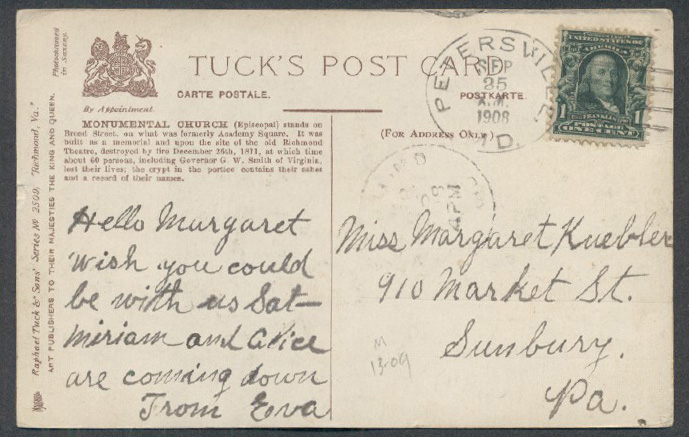 TUCK'S POST CARD
CARTE POSTALE.
POSTKARTE.
By Appointment.
Photochromed in Saxony.
(FOR ADDRESS ONLY.)
MONUMENTAL CHURCH (Episcopal) stands on
Broad Street, on what was formerly Academy Square. It was
built as a memorial and upon the site of the old Richmond
Theatre, destroyed by fire December 26th, 1811, at which time
about 60 persons, including Governor G. W. Smith of Virginia,
lost their lives; the crypt in the portico contains their ashes
and a record of their names.
Raphael Tuck & Sons' Series No 2500, "Richmond, Va."
ART PUBLISHERS TO THEIR MAJESTIES THE KING AND QUEEN.
PETERSVILLE
SEP
25
A.M.
1908
MD.
UNITED STATES OF
AMERICA
FRANKLIN
1 1
POSTAGE
ONE CENT
4PM
Hello Margaret
Wish you could
be with us Sat-
Miriam and Alice
are coming down
From Eva
Miss Margaret Kuebler
910 Market St.
Sunbury.
Pa.
M
13-09